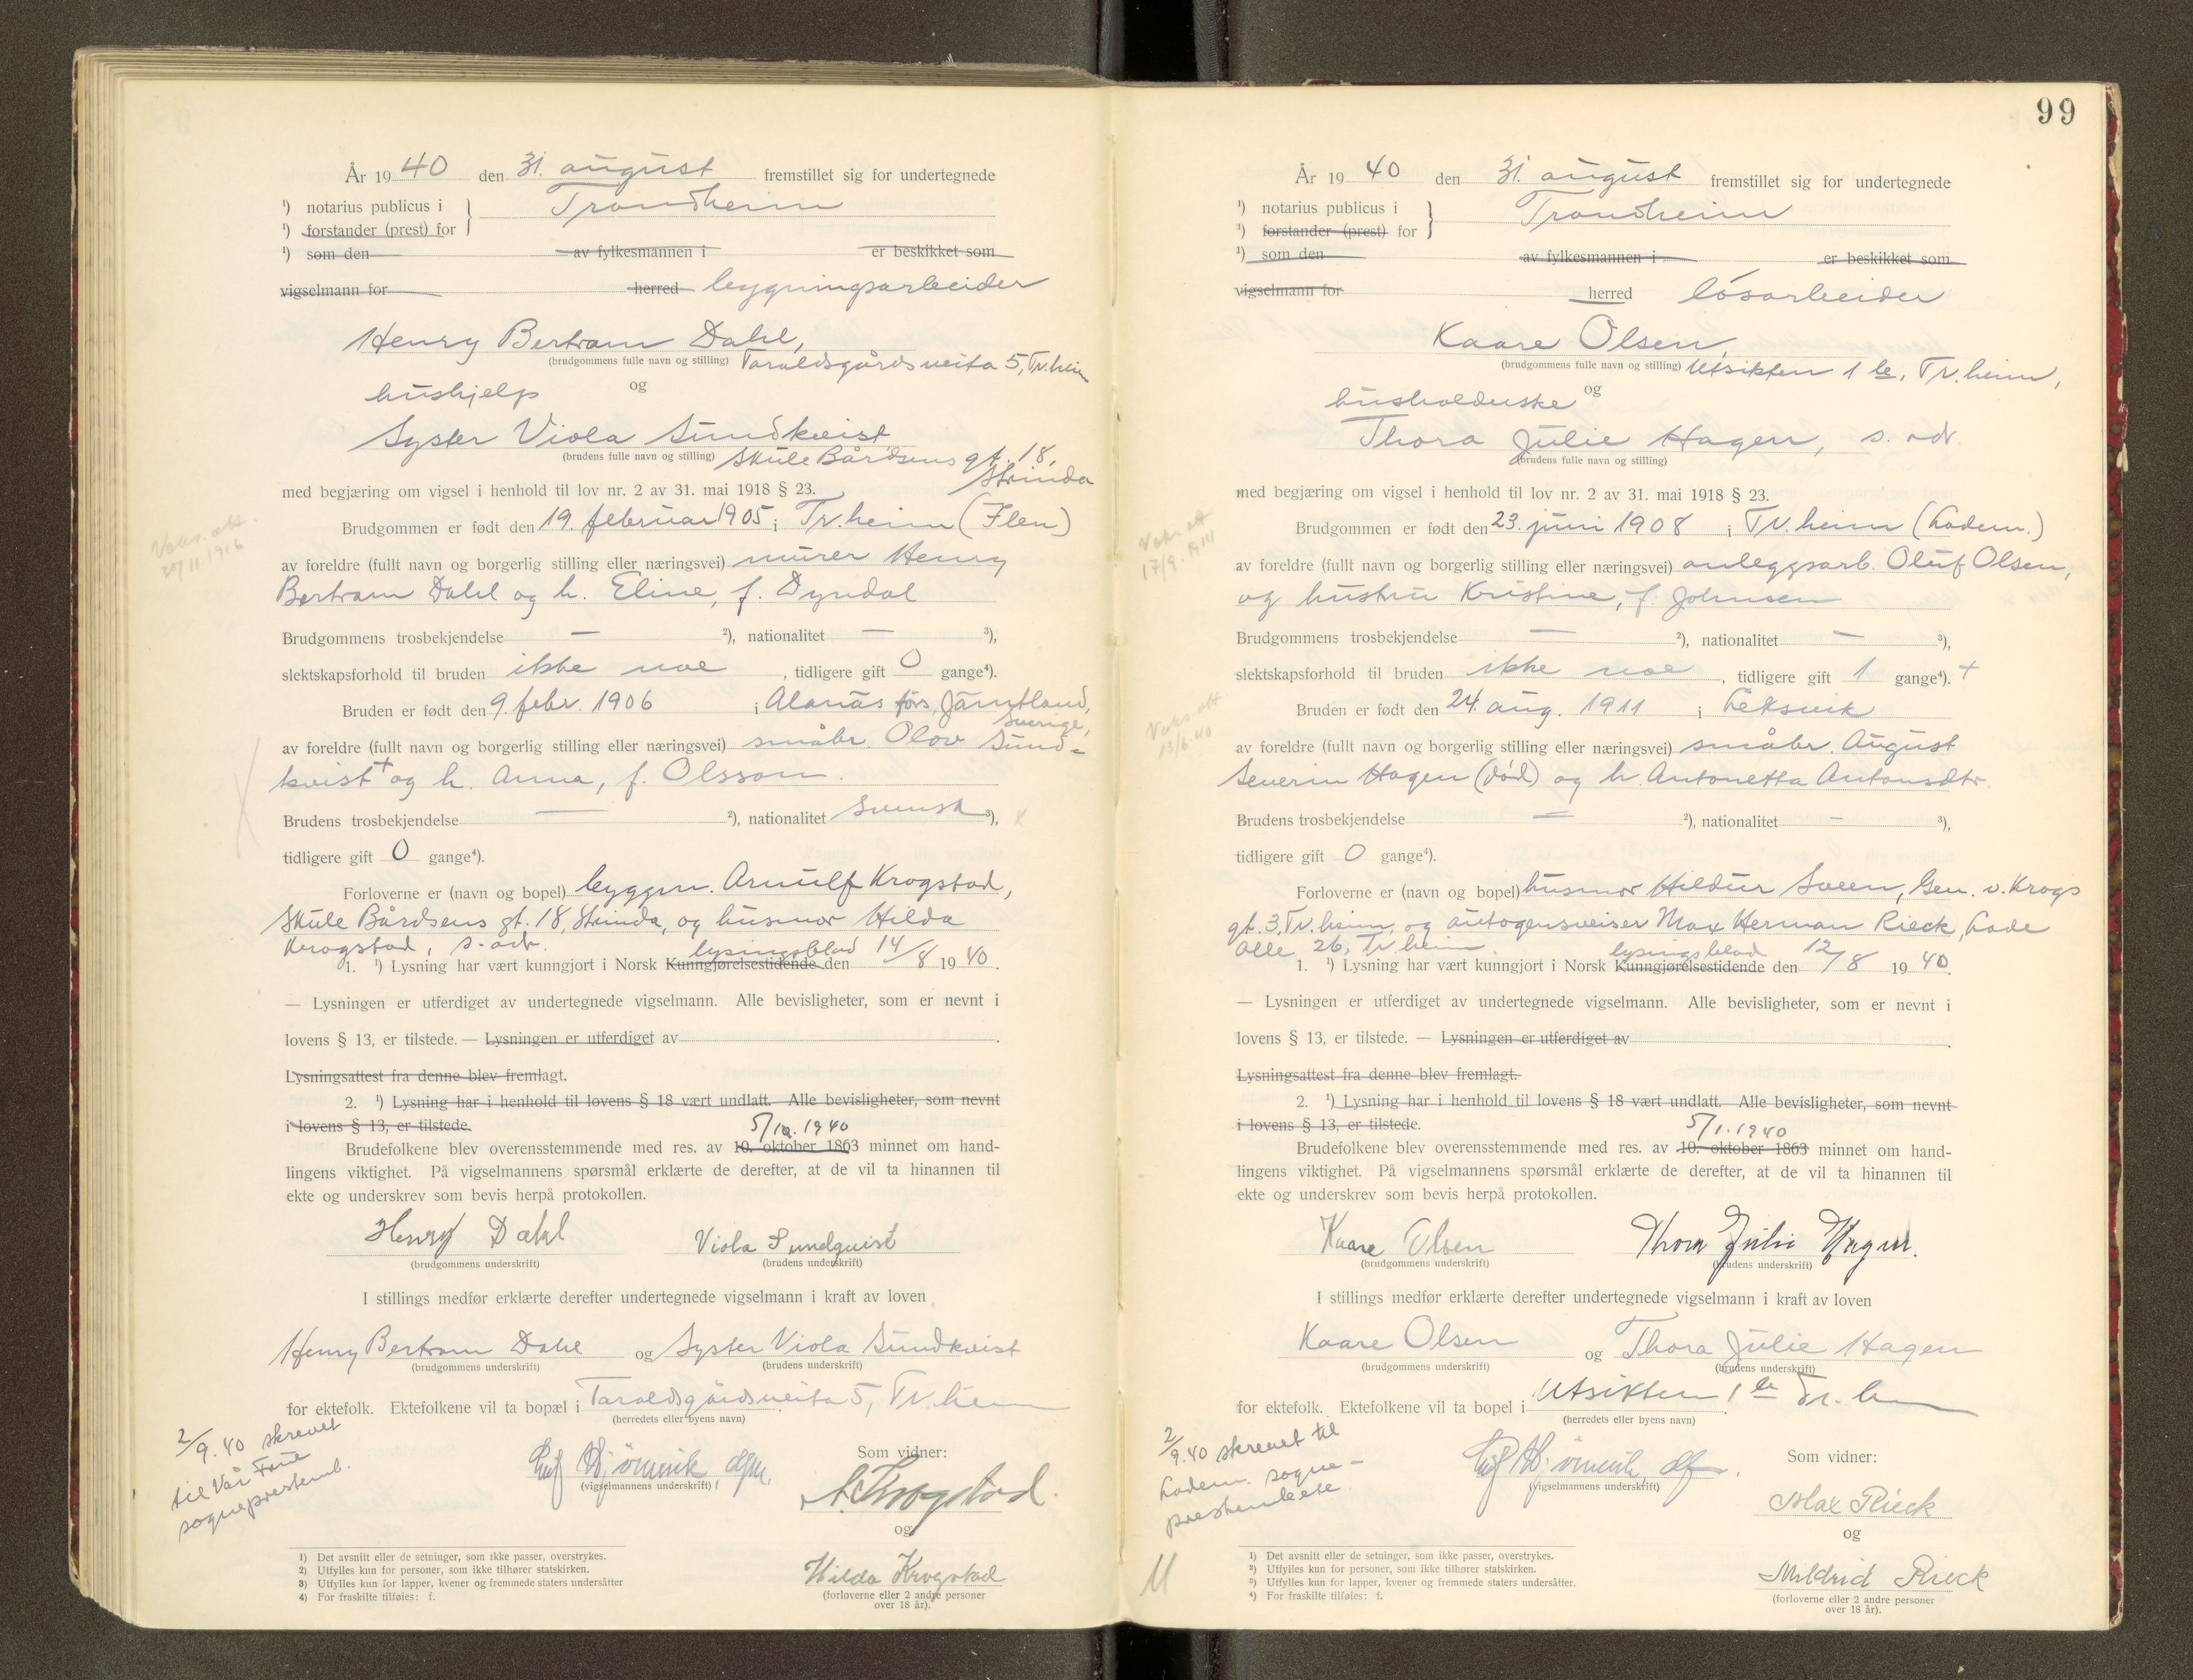 År 1940 den 31. august fremstillet sig for undertegnede
¹) notarius publicus i } Trondheim
¹) forstander (prest) for
¹) som den av fylkesmannen i er beskikket som
vigselmann for herred bygningsarbeider
Henry Bertram Dahl,
(brudgommens fulle navn og stilling) Taraldsgårdsveita 5, Tr.heim
og
hushjelp
Syster Viola Sundkvist
(brudens fulle navn og stilling) Skule Bårdsens gt. 18,
Strinda
med begjæring om vigsel i henhold til lov nr. 2 av 31. mai 1918 § 23.
Brudgommen er født den 19. februar 1905 i Tr.heim (Ilen)
Vaks. att.
av foreldre (fullt navn og borgerlig stilling eller næringsvei) murer Henry
Bertram Dahl og h. Eline, f. Dyndal
Brudgommens trosbekjendelse — ²), nationalitet — ³),
slektskapsforhold til bruden ikke noe , tidligere gift 0 gange⁴).
Bruden er født den 9. febr. 1906 i Alanäs förs, Jämtland,
Sverige,
av foreldre (fullt navn og borgerlig stilling eller næringsvei) småbr. Olov Sund-
kvist + og h. Anna, f. Olsson.
Brudens trosbekjendelse — ²), nationalitet svensk ³), x
tidligere gift 0 gange⁴).
Forloverne er (navn og bopel) byggm. Arnulf Krogstad,
Skule Bårdsens gt. 18, Strinda, og husmor Hilda
Krogstad, s. adr.
lysingsblad
1. ¹) Lysning har vært kunngjort i Norsk Kunngjørelsestidende den 14/8 1940.
— Lysningen er utferdiget av undertegnede vigselmann. Alle bevisligheter, som er nevnt i
lovens § 13, er tilstede. — Lysningen er utferdiget av
Lysningsattest fra denne blev fremlagt.
2. ¹) Lysning har i henhold til lovens § 18 vært undlatt. Alle bevisligheter, som nevnt
i lovens § 13, er tilstede.
5/1. 1940
Brudefolkene blev overensstemmende med res. av 10. oktober 1863 minnet om hand-
lingens viktighet. På vigselmannens spørsmål erklærte de derefter, at de vil ta hinannen til
ekte og underskrev som bevis herpå protokollen.
Henry Dahl Viola Sundquist
(brudgommens underskrift) (brudens underskrift)
I stillings medfør erklærte derefter undertegnede vigselmann i kraft av loven
Henry Bertram Dahl og Syster Viola Sundkvist
(brudgommens underskrift) (brudens underskrift)
for ektefolk. Ektefolkene vil ta bopæl i Taraldsgårdsveita 5, Tr.heim
(herredets eller byens navn)
2/9.40 skrevet
til Vår Frue
sogneprestemb.
(vigselmannens underskrift)
Som vidner:
A. Krogstad.
og
Hilda Krogstad
(forloverne eller 2 andre personer
over 18 år).
1) Det avsnitt eller de setninger, som ikke passer, overstrykes.
2) Utfylles kun for personer, som ikke tilhører statskirken.
3) Utfylles kun for lapper, kvener og fremmede staters undersåtter
4) For fraskilte tilføies: f.
99
År 1940 den 31. august fremstillet sig for undertegnede
¹) notarius publicus i } Trondheim
¹) forstander (prest) for
¹) som den av fylkesmannen i er beskikket som
vigselmann for herred løsarbeider
Kaare Olsen,
(brudgommens fulle navn og stilling) Utsikten 1 b, Tr.heim,
og
husholderske
Thora Julie Hagen, s. adr.
(brudens fulle navn og stilling)
med begjæring om vigsel i henhold til lov nr. 2 av 31. mai 1918 § 23.
Brudgommen er født den 23. juni 1908 i Tr.heim (Ladem.)
Vaks. att
17/9. 1914
av foreldre (fullt navn og borgerlig stilling eller næringsvei) anleggsarb. Oluf Olsen,
og hustru Kristine, f. Johnsen
Brudgommens trosbekjendelse — ²), nationalitet — ³),
slektskapsforhold til bruden ikke noe , tidligere gift 1 gange⁴). +
Vaks. att
13/6.40
Bruden er født den 24. aug. 1911 i Leksvik
av foreldre (fullt navn og borgerlig stilling eller næringsvei) småbr. August
Severin Hagen (død) og h. Antonetta Antonsdtr.
Brudens trosbekjendelse — ²), nationalitet — ³),
tidligere gift 0 gange⁴).
Forloverne er (navn og bopel) husmor Hildur Sveen, Gen. v. Krogs
gt. 3, Tr.heim, og autogensveiser Max Herman Rieck, Lade
alle 26, Tr.heim
lysingsblad
1. ¹) Lysning har vært kunngjort i Norsk Kunngjørelsestidende den 12/8 1940.
— Lysningen er utferdiget av undertegnede vigselmann. Alle bevisligheter, som er nevnt i
lovens § 13, er tilstede. — Lysningen er utferdiget av
Lysningsattest fra denne blev fremlagt.
2. ¹) Lysning har i henhold til lovens § 18 vært undlatt. Alle bevisligheter, som nevnt
i lovens § 13, er tilstede.
5/1. 1940
Brudefolkene blev overensstemmende med res. av 10. oktober 1863 minnet om hand-
lingens viktighet. På vigselmannens spørsmål erklærte de derefter, at de vil ta hinannen til
ekte og underskrev som bevis herpå protokollen.
Kaare Olsen Thora Julie Hagen.
(brudgommens underskrift) (brudens underskrift)
I stillings medfør erklærte derefter undertegnede vigselmann i kraft av loven
Kaare Olsen og Thora Julie Hagen
(brudgommens underskrift) (brudens underskrift)
for ektefolk. Ektefolkene vil ta bopel i Utsikten 1 b Tr.heim
(herredets eller byens navn)
2/9.40 skrevet til
Ladem. sogne-
prestembete.
(vigselmannens underskrift)
Som vidner:
Max Rieck
og
Mildrid Rieck
(forloverne eller 2 andre personer
over 18 år).
¹) Det avsnitt eller de setninger, som ikke passer, overstrykes.
²) Utfylles kun for personer, som ikke tilhører statskirken.
³) Utfylles kun for lapper, kvener og fremmede staters undersåtter.
⁴) For fraskilte tilføies: f.